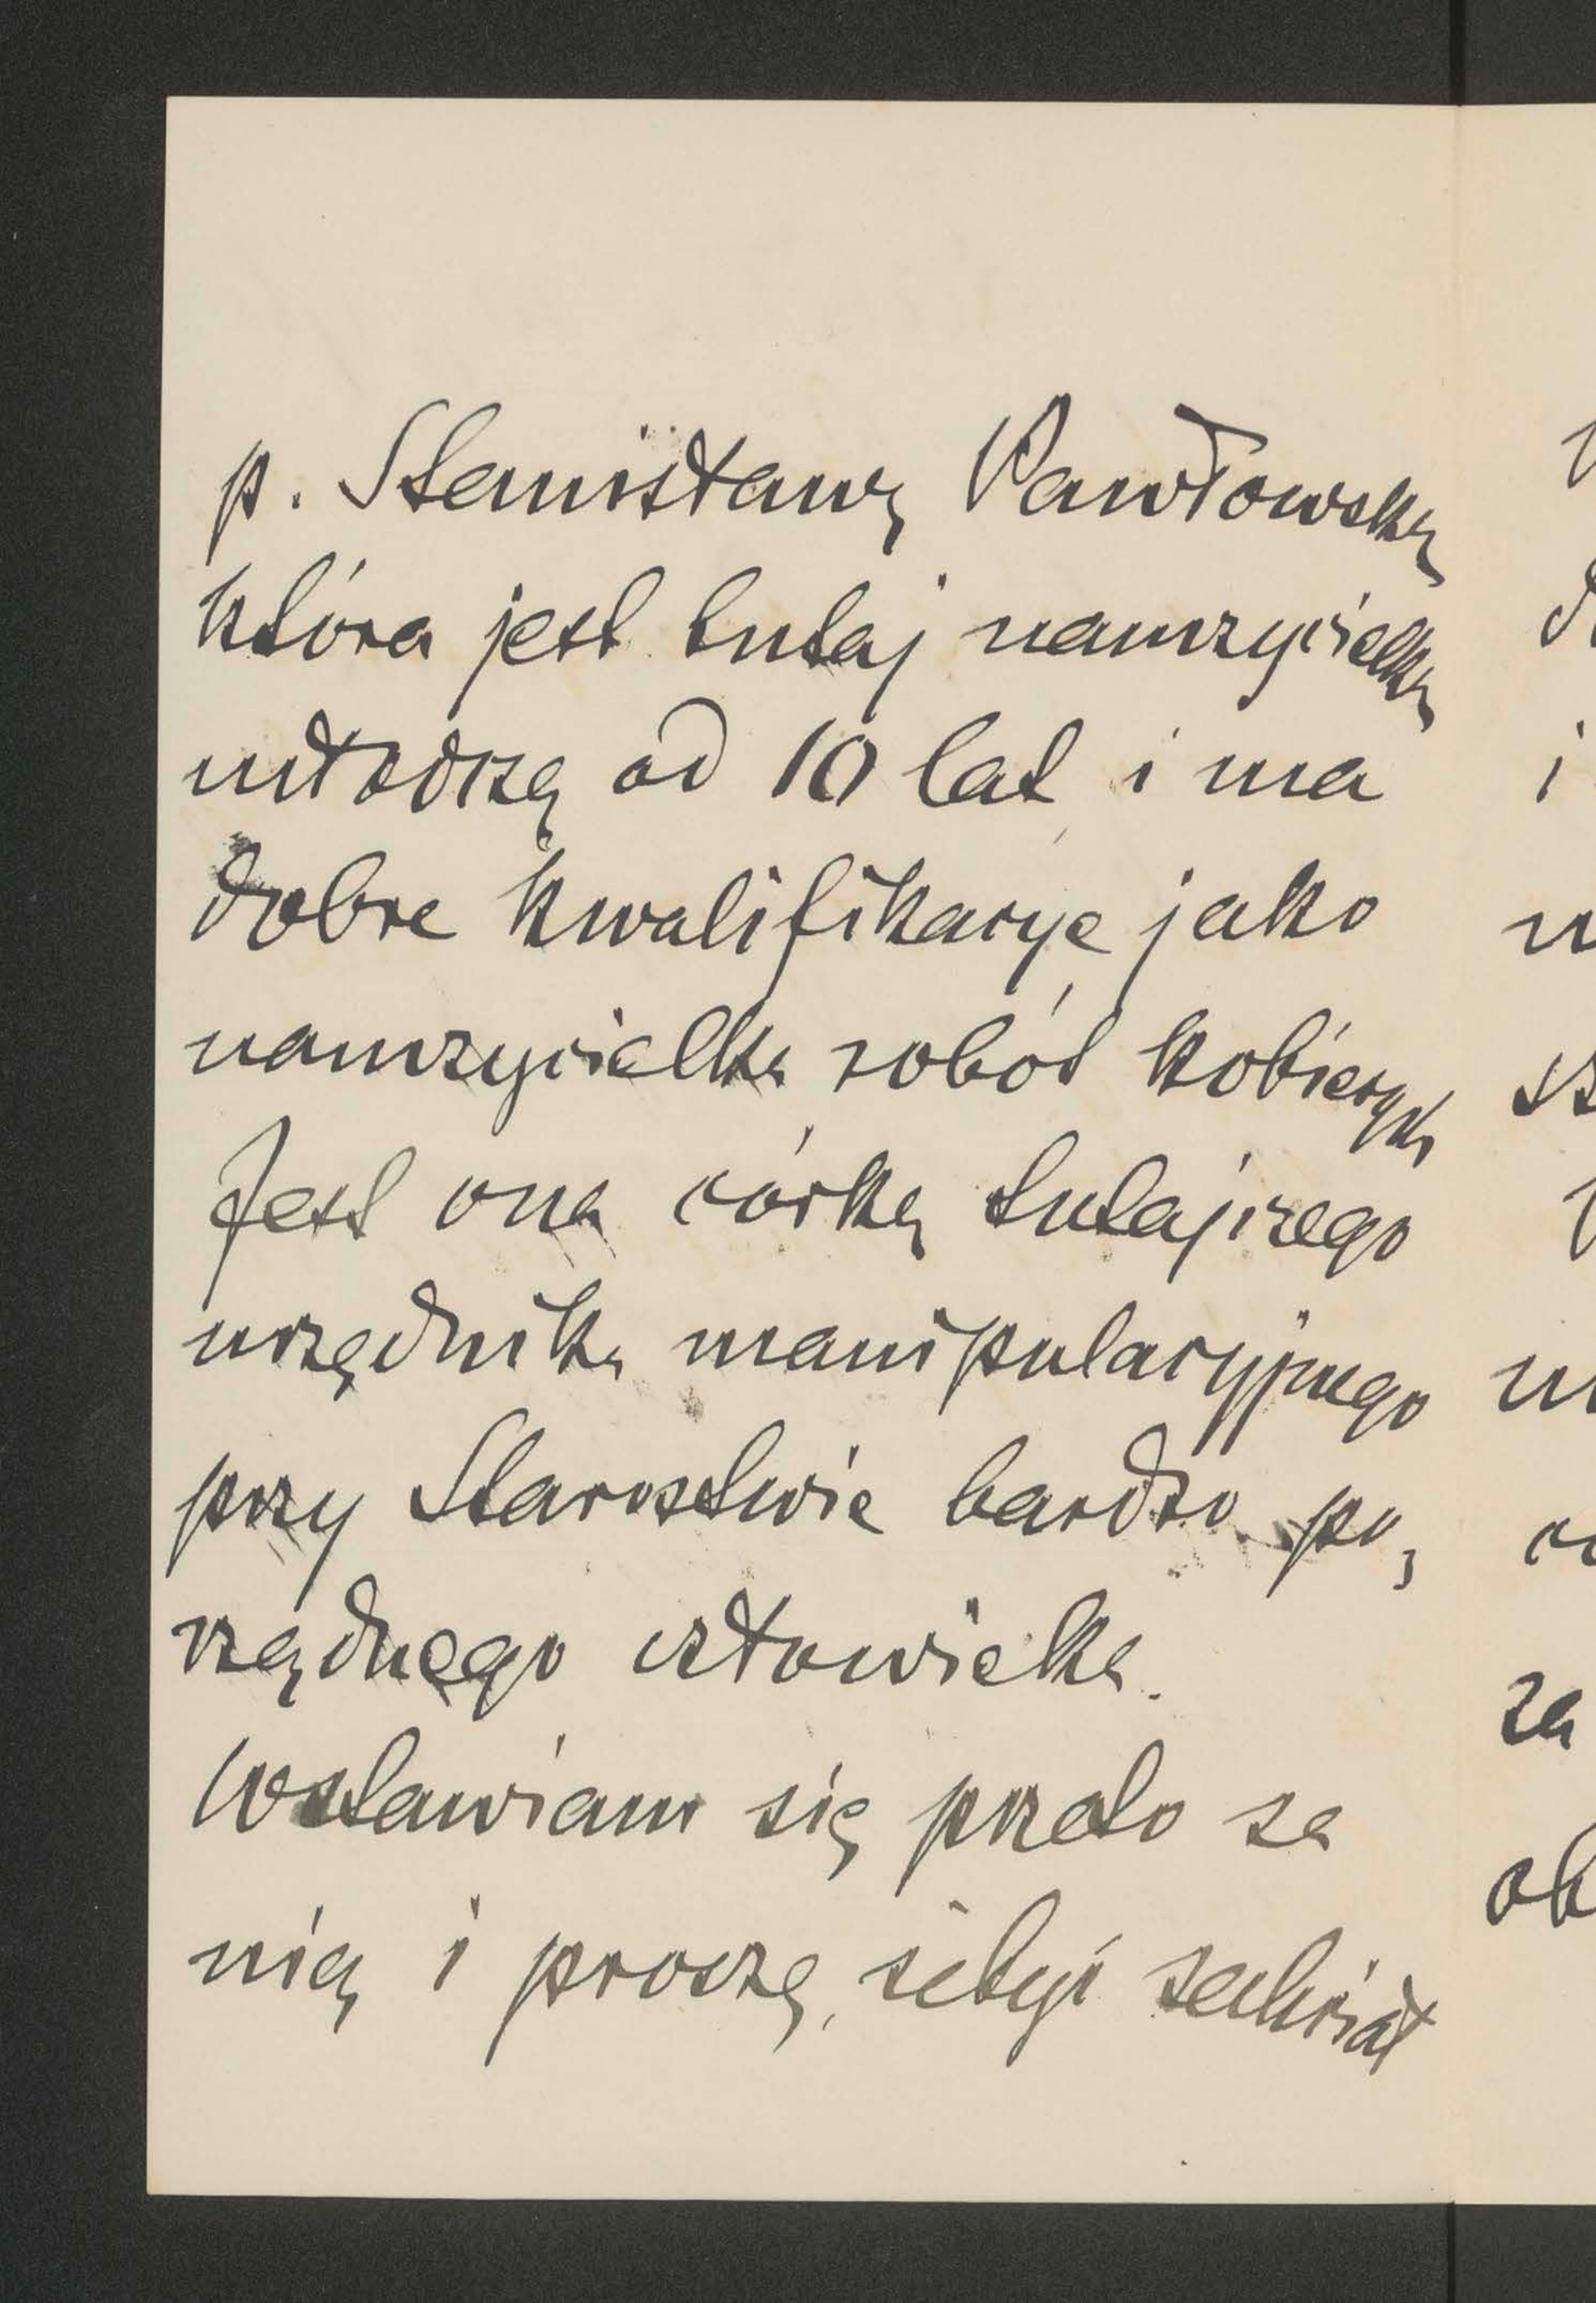 p. Stanisławę Pawłowską
która jest tutaj nauczycielką
młodszą od 10 lat i ma
dobre kwalifikacye jako
nauczycielka robót kobiecych
Jest ona córką tutejszego
urzędnika manipulacyjnego
przy Starostwie bardzo po„
rządnego człowieka.
Wstawiam się przeto za
nią i proszę, żebyś zechciał
i
za